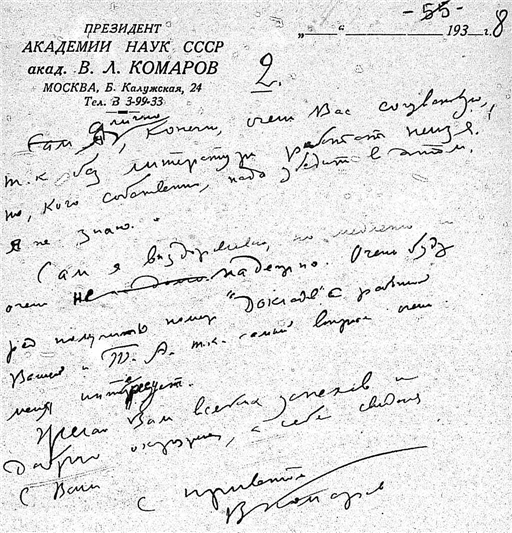 - 55 -
ПРЕЗИДЕНТ
АКАДЕМИИ НАУК СССР
акад. В. Л. КОМАРОВ
МОСКВА, Б. Калужская, 24
Тел. В 3-99-33
„ “ 193 8 г.
2.
Сам я лично, конечно, очень Вас сочувствую,
т.к. без литературы работать нельзя,
но, кого собственно, надо убедить в этом,
я не знаю.
Сам я выздоровлю, но медленно и
очень не надежно. Очень буду
рад получить номер "Докладов" с работой
Вашей и Т. А. т.к. самый вопрос очень
меня интересует.
Желаю Вам всяких успехов и
доброго, а себе свидания
с Вами
С приветом
В Комаров